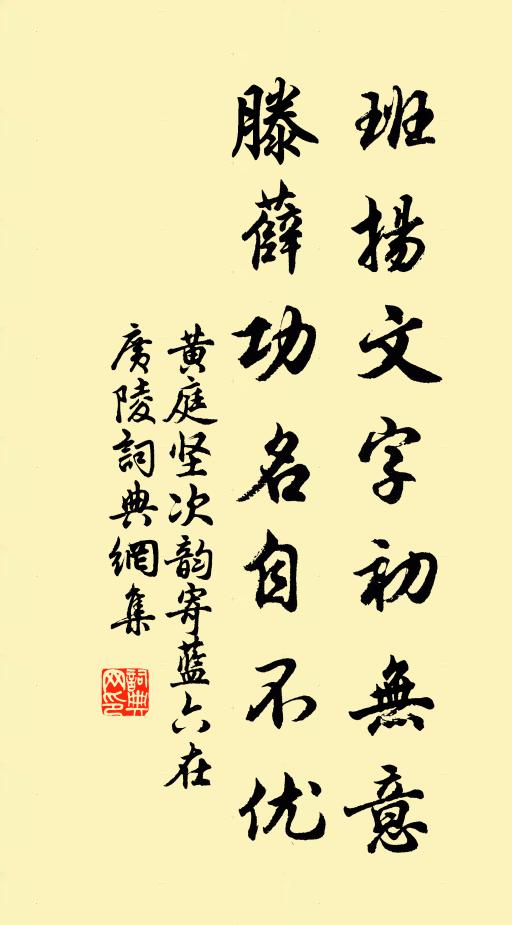 班揚文字初無意
滕薛功名自不优
黄庭坚次韵寄藍六在
廣陵詞典網集
詞典
网印